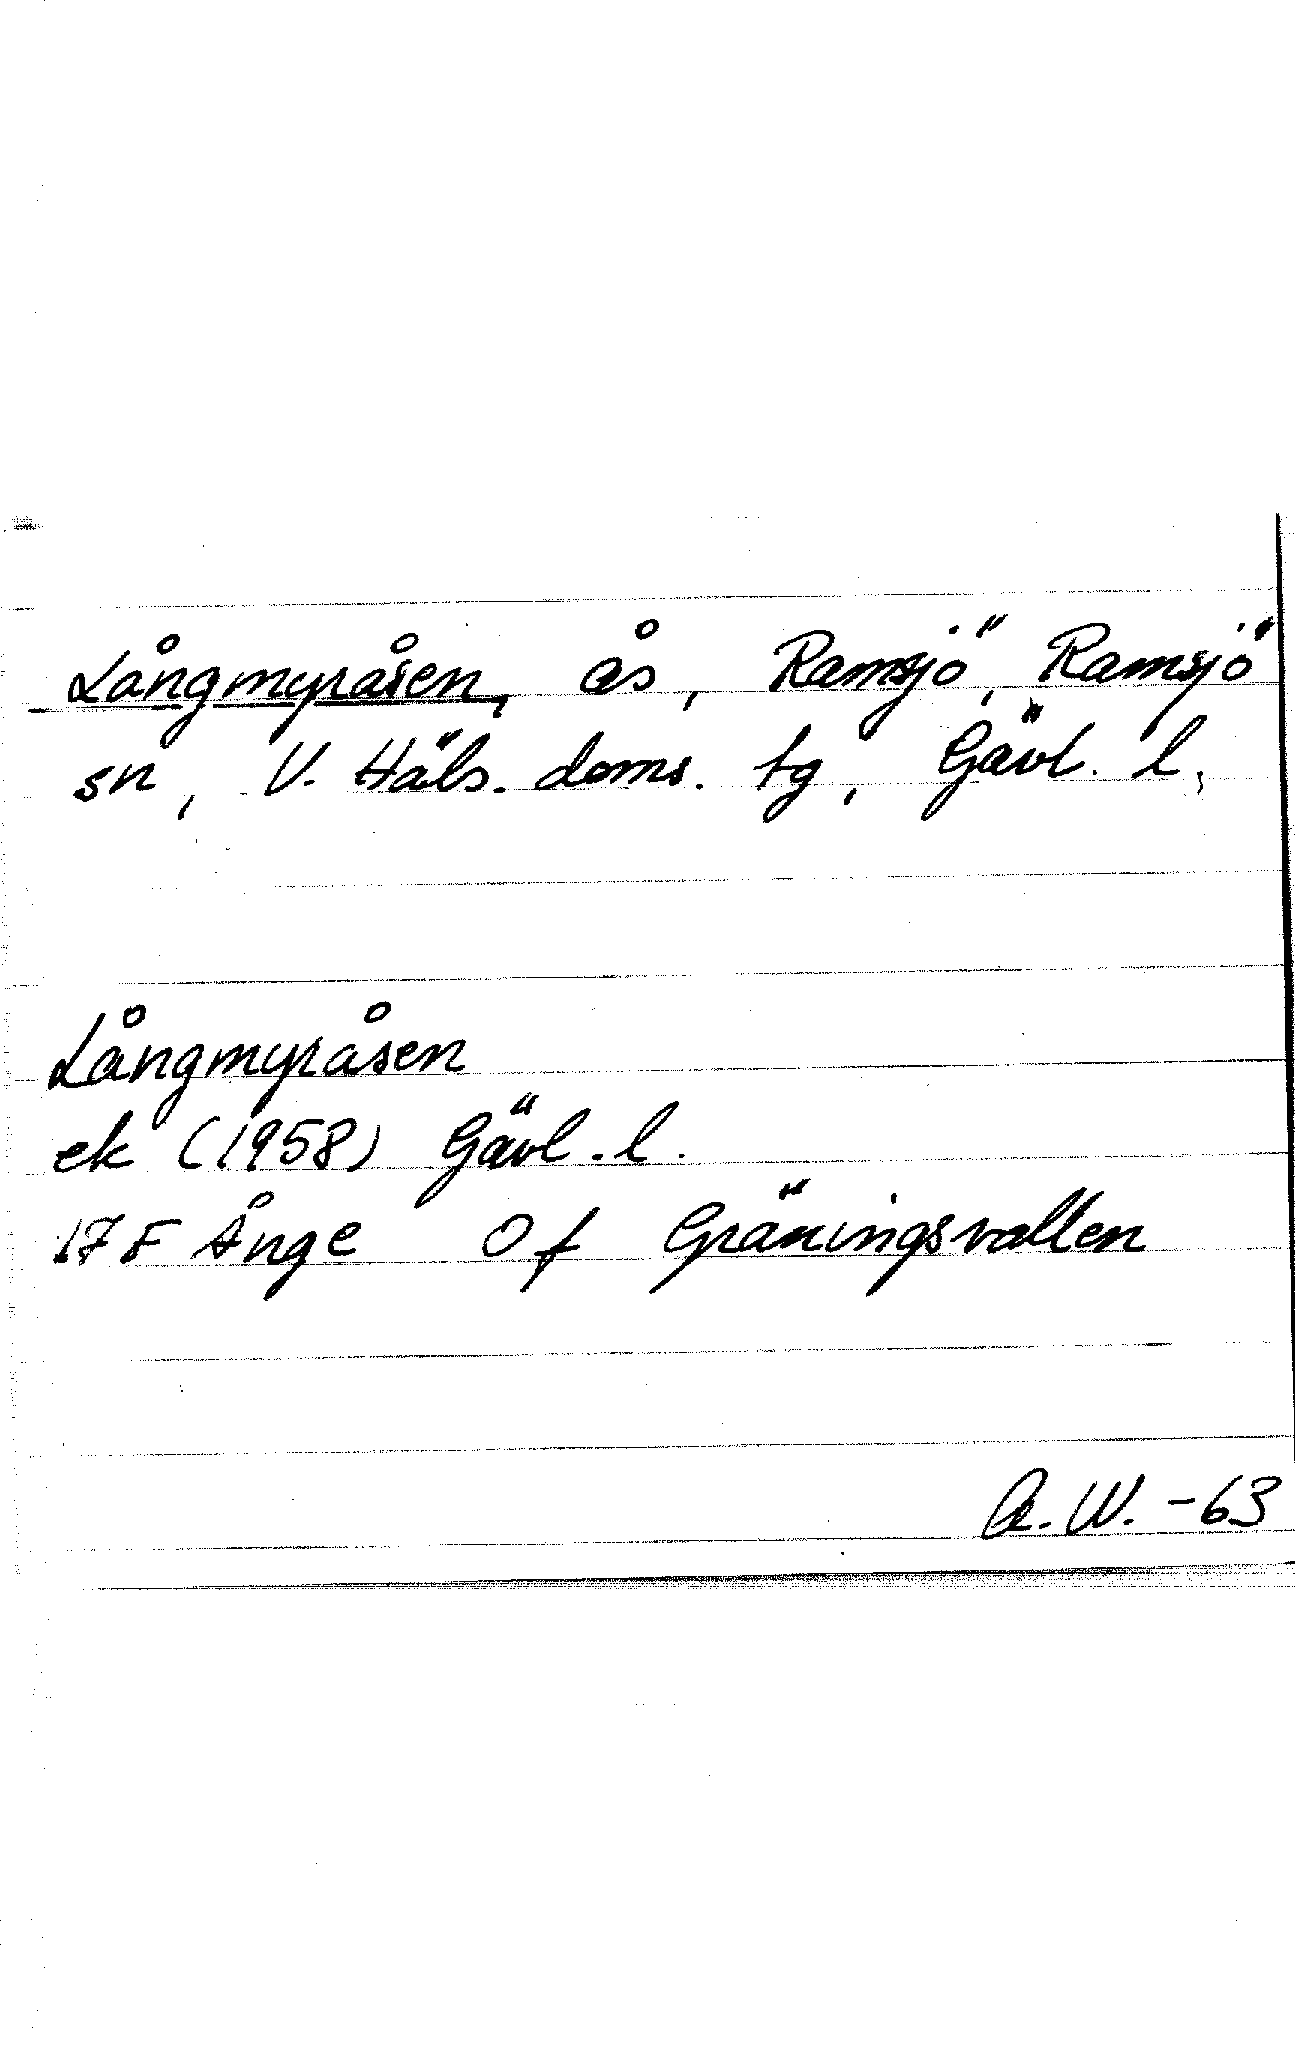 Långmyråsen, ås, Ramsjö, Ramsjö
sn, V. Häls. doms. tg, Gävl. l.
Långmyråsen
ek (1958) Gävl. l.
17 F Ånge Of Gräningsvallen
A. W. -63